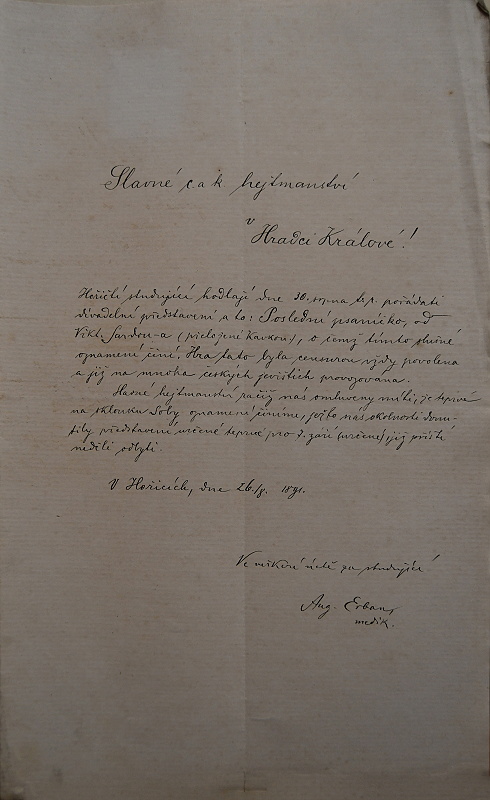 Slavné c. a k. hejtmanství
v
Hradci Králové!
Hořičtí studující hodlají dne 30. srpna t.r. pořádati
divadelní představení a to: Poslední psaníčko, od
Vikt. Sardou-a (přeložení Kavkou), o čemž tímto slušné
oznamení činí. Hra tato byla censurou vždy povolena
a již na mnoha českých jevištích provozována.
Slavné hejtmanství račiž nás omluveny míti, že teprvé
na sklonku doby oznamení činíme, ježto nás okolnosti donu-
tily představení určené teprvé pro 7. září (určené), již příští
neděli odbyti.
V Hořicích, dne 26./8. 1891.
V úctě za studující
Aug. Erban,
medik.